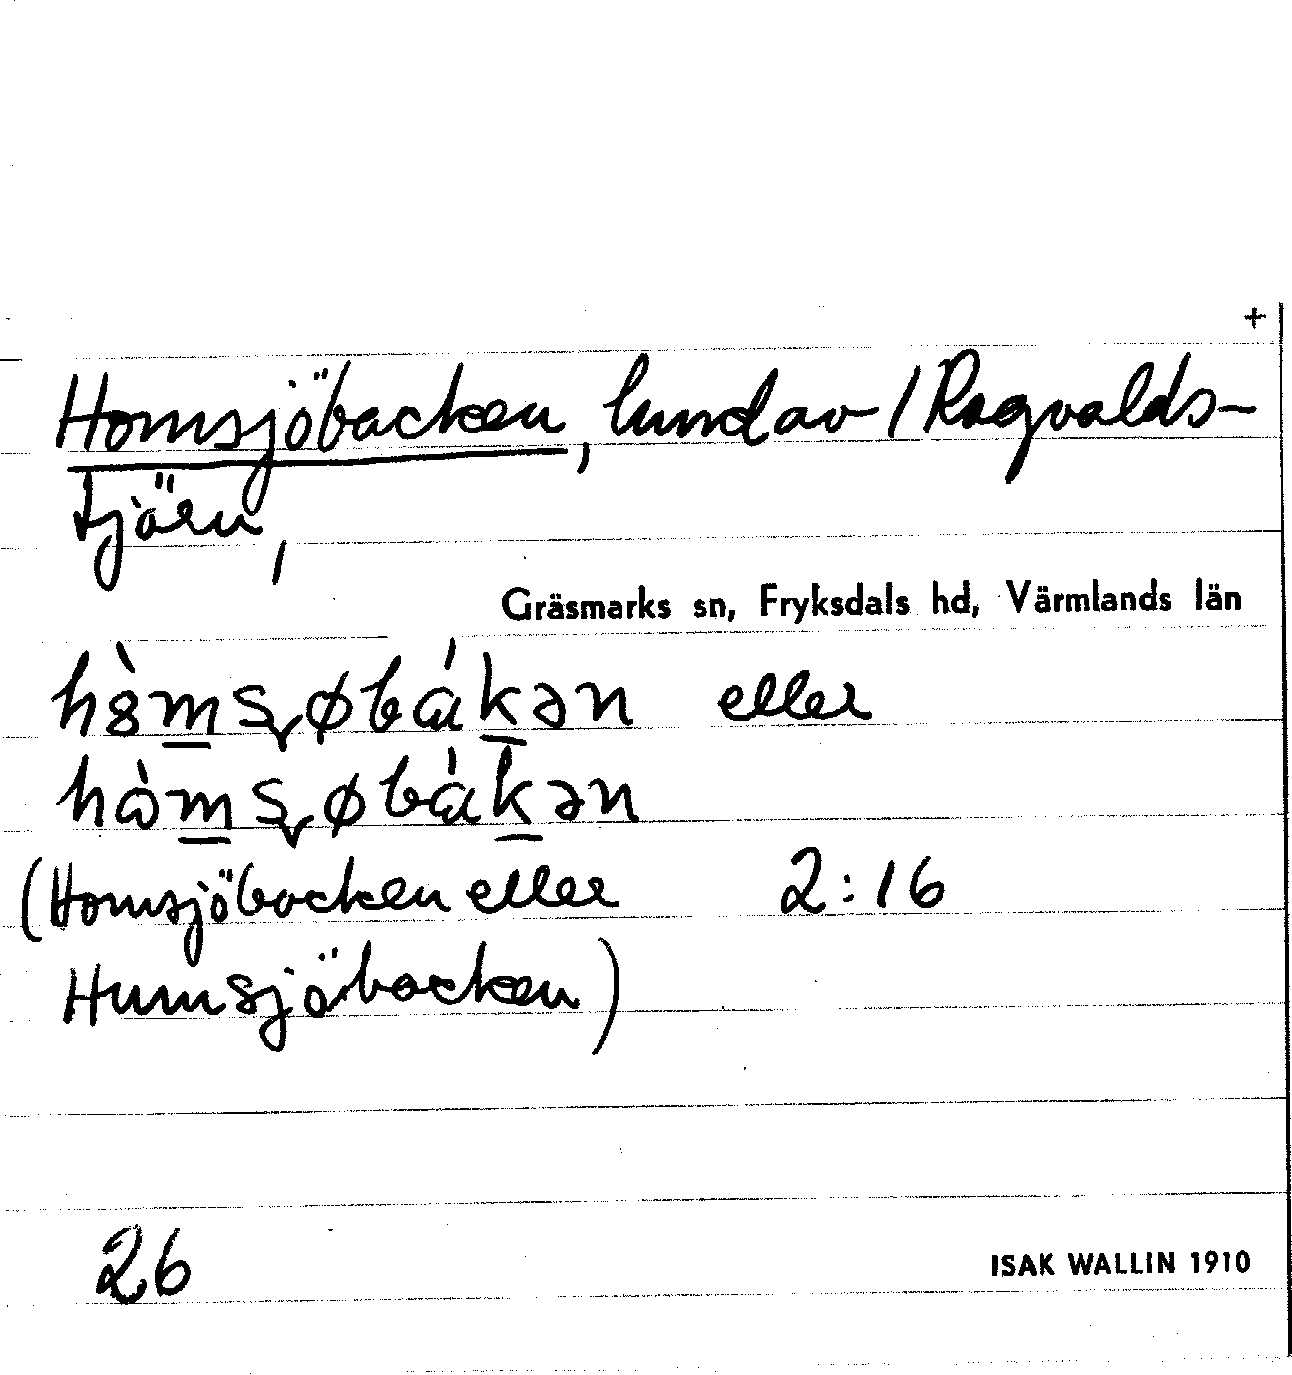 +
Homsjöbacken, lund av / Ragvalds-
tjärn,
Gräsmarks sn, Fryksdals hd, Värmlands län
eller
(Homsjöbacken eller 2:16
Humsjöbacken)
26
ISAK WALLIN 1910